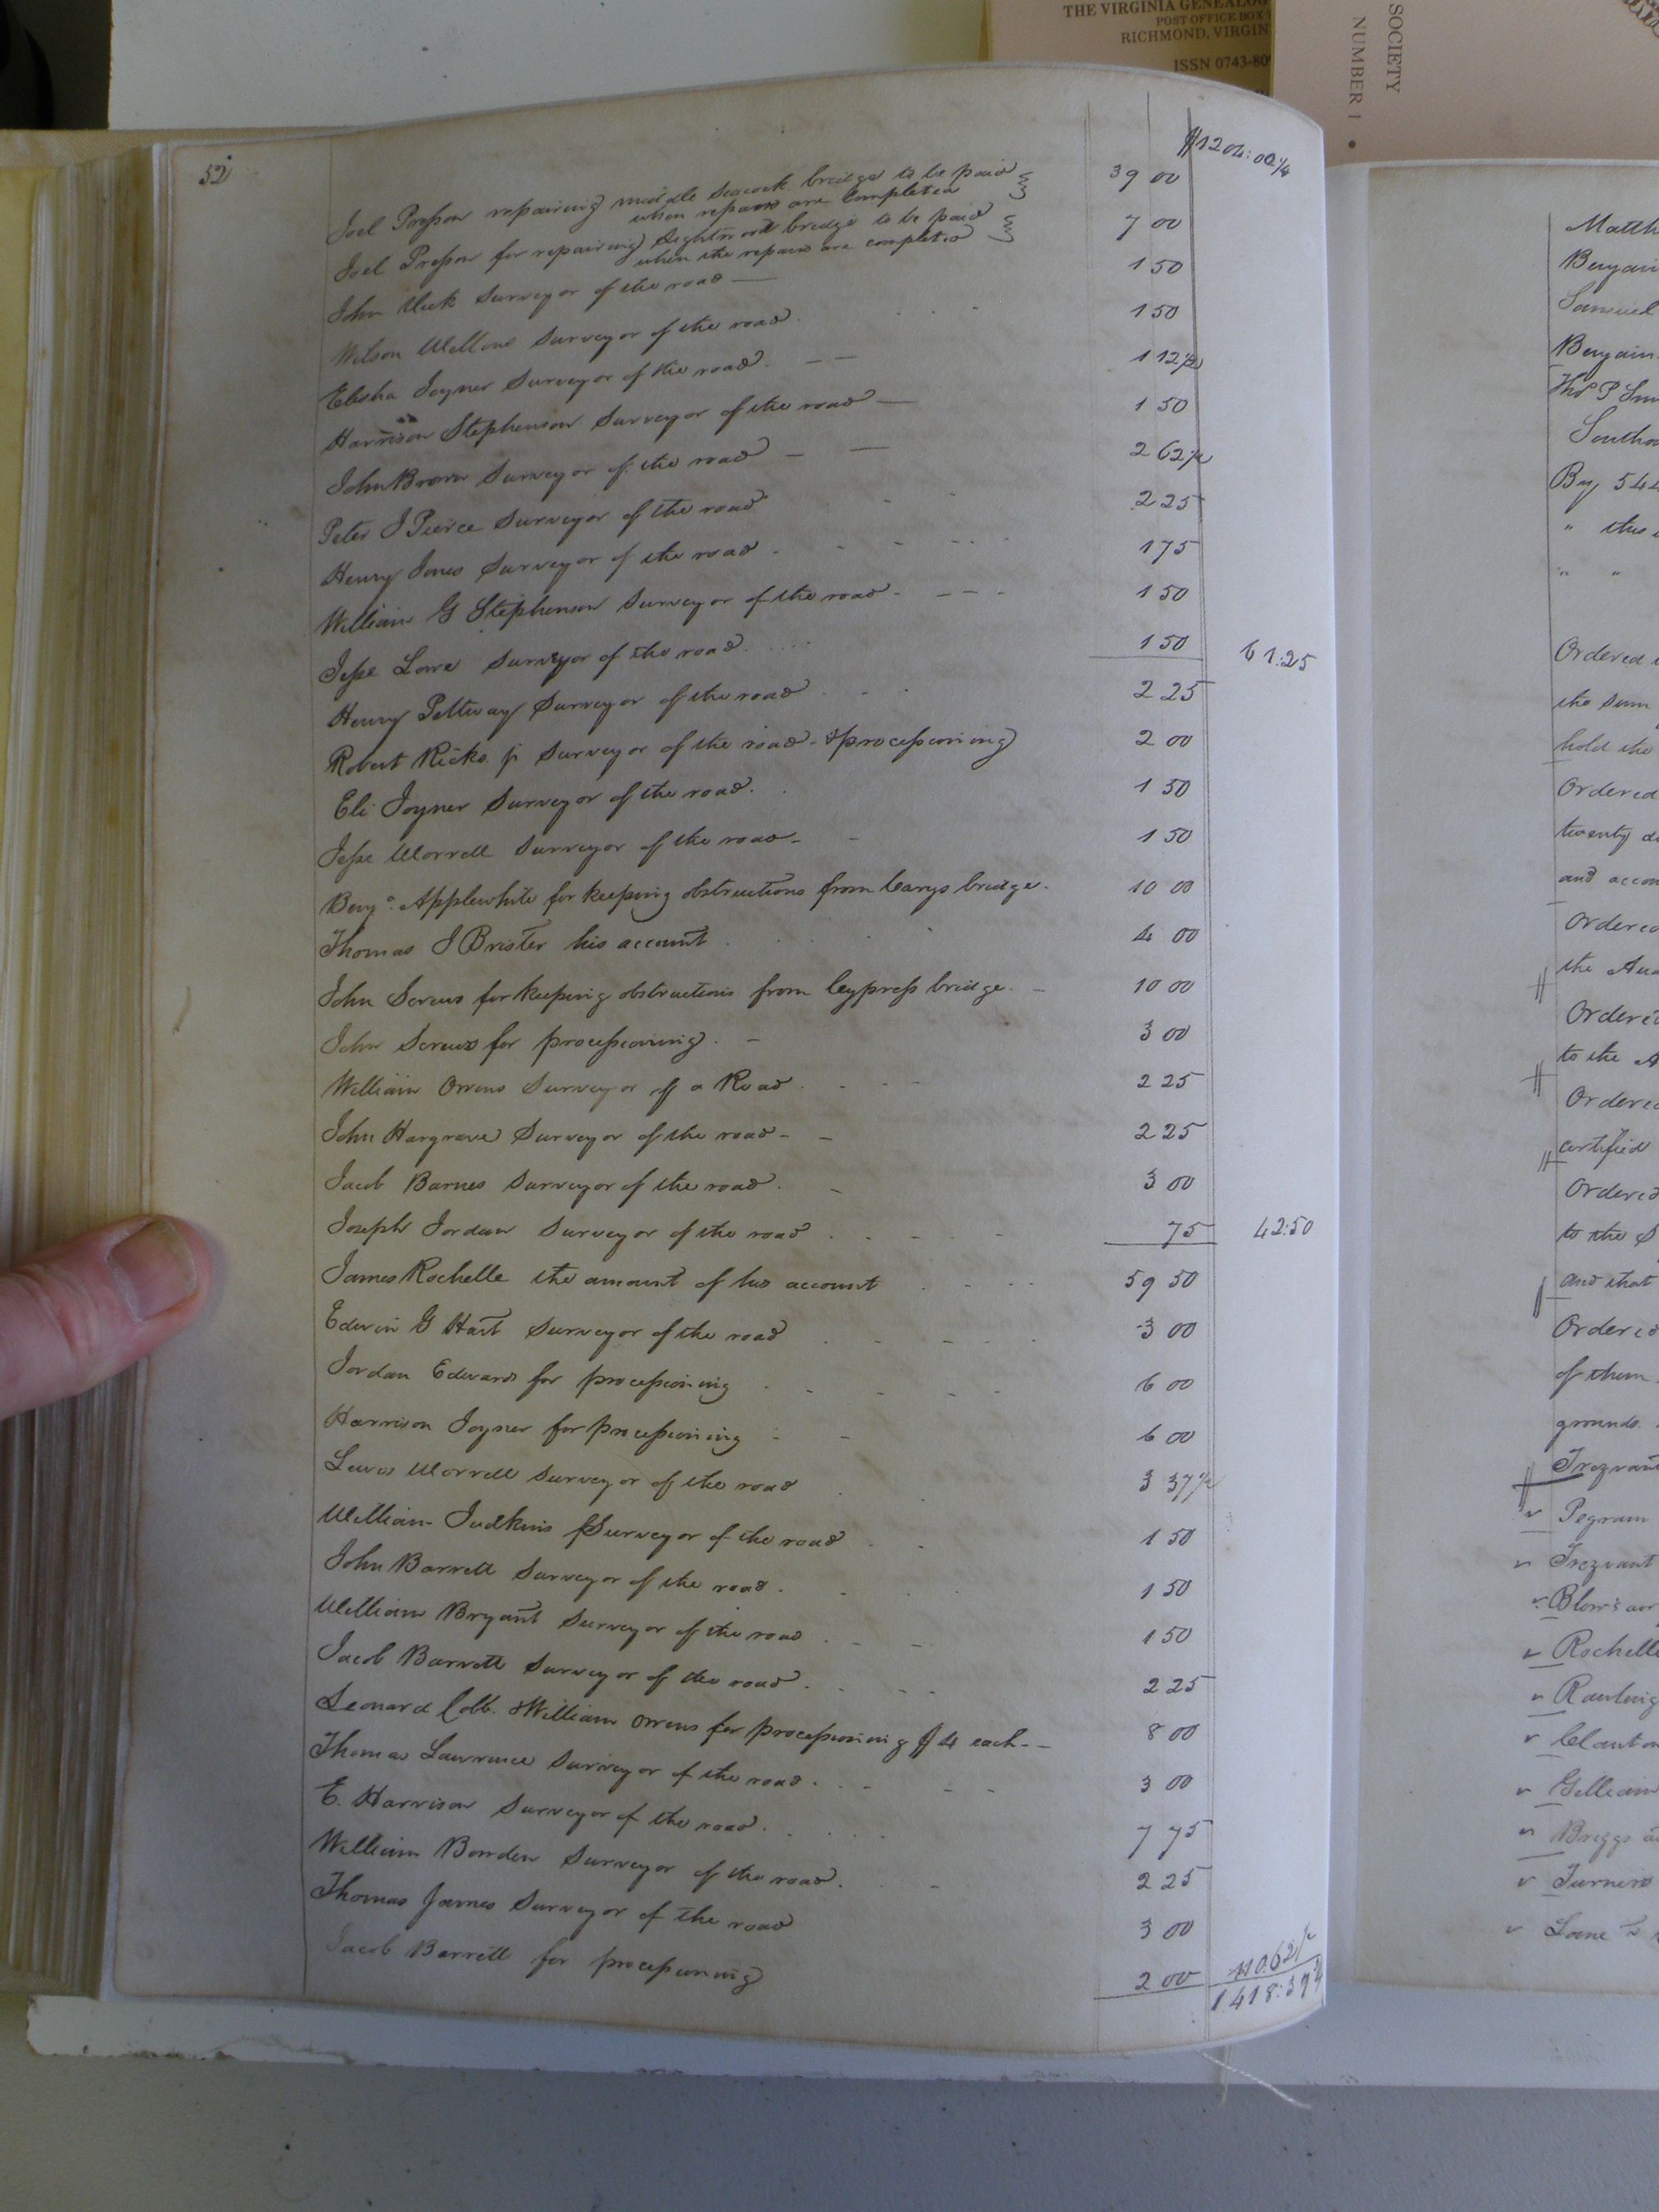 THE VIRGINIA GENEALOG
POST OFFICE BOX
RICHMOND, VIRGIN
ISSN 0743-80
SOCIETY
NUMBER 1 •
52
$1204:00¼
Joel Presson repairing middle Seacock bridge to be paid
when repairs are completed 39 00
Joel Presson for repairing Lightwood bridge to be paid
when the repairs are completed 7 00
John Vick Surveyor of the road 1 50
Wilson Wellons Surveyor of the road 1 50
Elisha Joyner Surveyor of the road 1 12½
Harrison Stephenson Surveyor of the road 1 50
John Brown Surveyor of the road 2 62½
Peter J Pierce Surveyor of the road 2 25
Henry Jones Surveyor of the road 1 75
William G Stephenson Surveyor of the road 1 50
Jesse Lowe Surveyor of the road 1 50 61:25
Henry Pettway Surveyor of the road 2 25
Robert Ricks jr Surveyor of the road & processioning 2 00
Eli Joyner Surveyor of the road 1 50
Jesse Worrell Surveyor of the road 1 50
Benja Applewhite for keeping obstructions from Carys bridge 10 00
Thomas J Brister his account 4 00
John Screws for keeping obstructions from Cypress bridge 10 00
John Screws for processioning 3 00
William Owens Surveyor of a Road 2 25
John Hargrave Surveyor of the road 2 25
Jacob Barnes Surveyor of the road 3 00
Joseph Jordan Surveyor of the road 75 42:50
James Rochelle the amount of his account 59 50
Edwin G Hart Surveyor of the road 3 00
Jordan Edwards for processioning 6 00
Harrison Joyner for processioning 6 00
Lewis Worrell Surveyor of the road 3 37½
William Judkins Surveyor of the road 1 50
John Barrett Surveyor of the road 1 50
William Bryant Surveyor of the road 1 50
Jacob Barrett Surveyor of the road 2 25
Leonard Cobb & William Owens for processioning $4 each 8 00
Thomas Lawrence Surveyor of the road 3 00
E. Harrison Surveyor of the road 7 75
William Bowden Surveyor of the road 2 25
Thomas James Surveyor of the road 3 00
Jacob Barrett for processioning 2 00 110.62½
1.418:37¾
Matth
Benjain
Samuel
Benjain
Thos P
South
By 544
" this
" "
Ordered
the sum
hold the
Ordered
twenty
and accou
Ordered
the
Ordered
to the A
Ordered
certified
Ordered
to the S
and that
Ordered
of them
grounds.
Trezvant
Pegram
Trezvant
Blow's
Rochelle
Rawling
Claut
Gilliam
Briggs
Turners
Lane